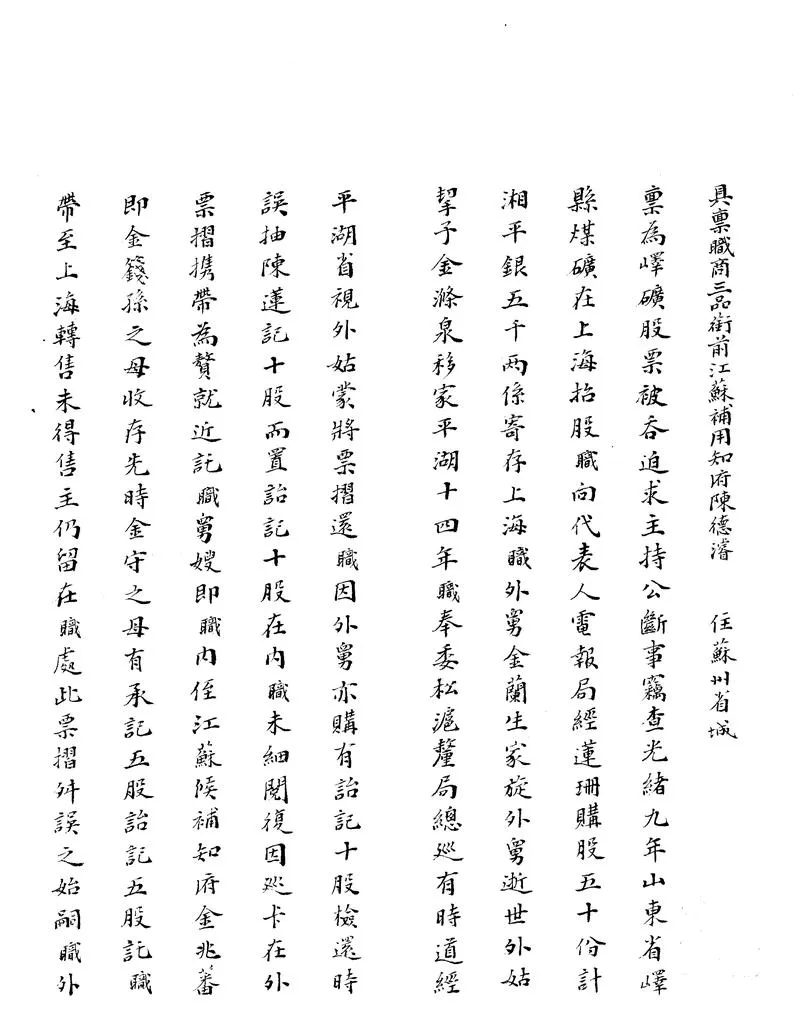 具禀職商三品銜前江蘇補用知府陳德濬 住蘇州省城
禀為嶧礦股票被吞迫求主持公斷事竊查光緒九年山東省嶧
縣煤礦在上海招股職向代表人電報局經蓮珊購股五十份計
湘平銀五千兩係寄存上海職外舅金蘭生家旋外舅逝世外姑
挈子金滌泉移家平湖十四年職奉委松滬釐局總巡有時道經
平湖省視外姑蒙將票摺還職因外舅亦購有詒記十股檢還時
誤抽陳蓮記十股而置詒記十股在內職未細閱復因巡卡在外
票摺携帶為贅就近託職舅嫂即職內侄江蘇候補知府金兆蕃
即金籛孫之母收存先時金守之母有承記五股詒記五股託職
帶至上海轉售未得售主仍留在職處此票摺舛誤之始嗣職外